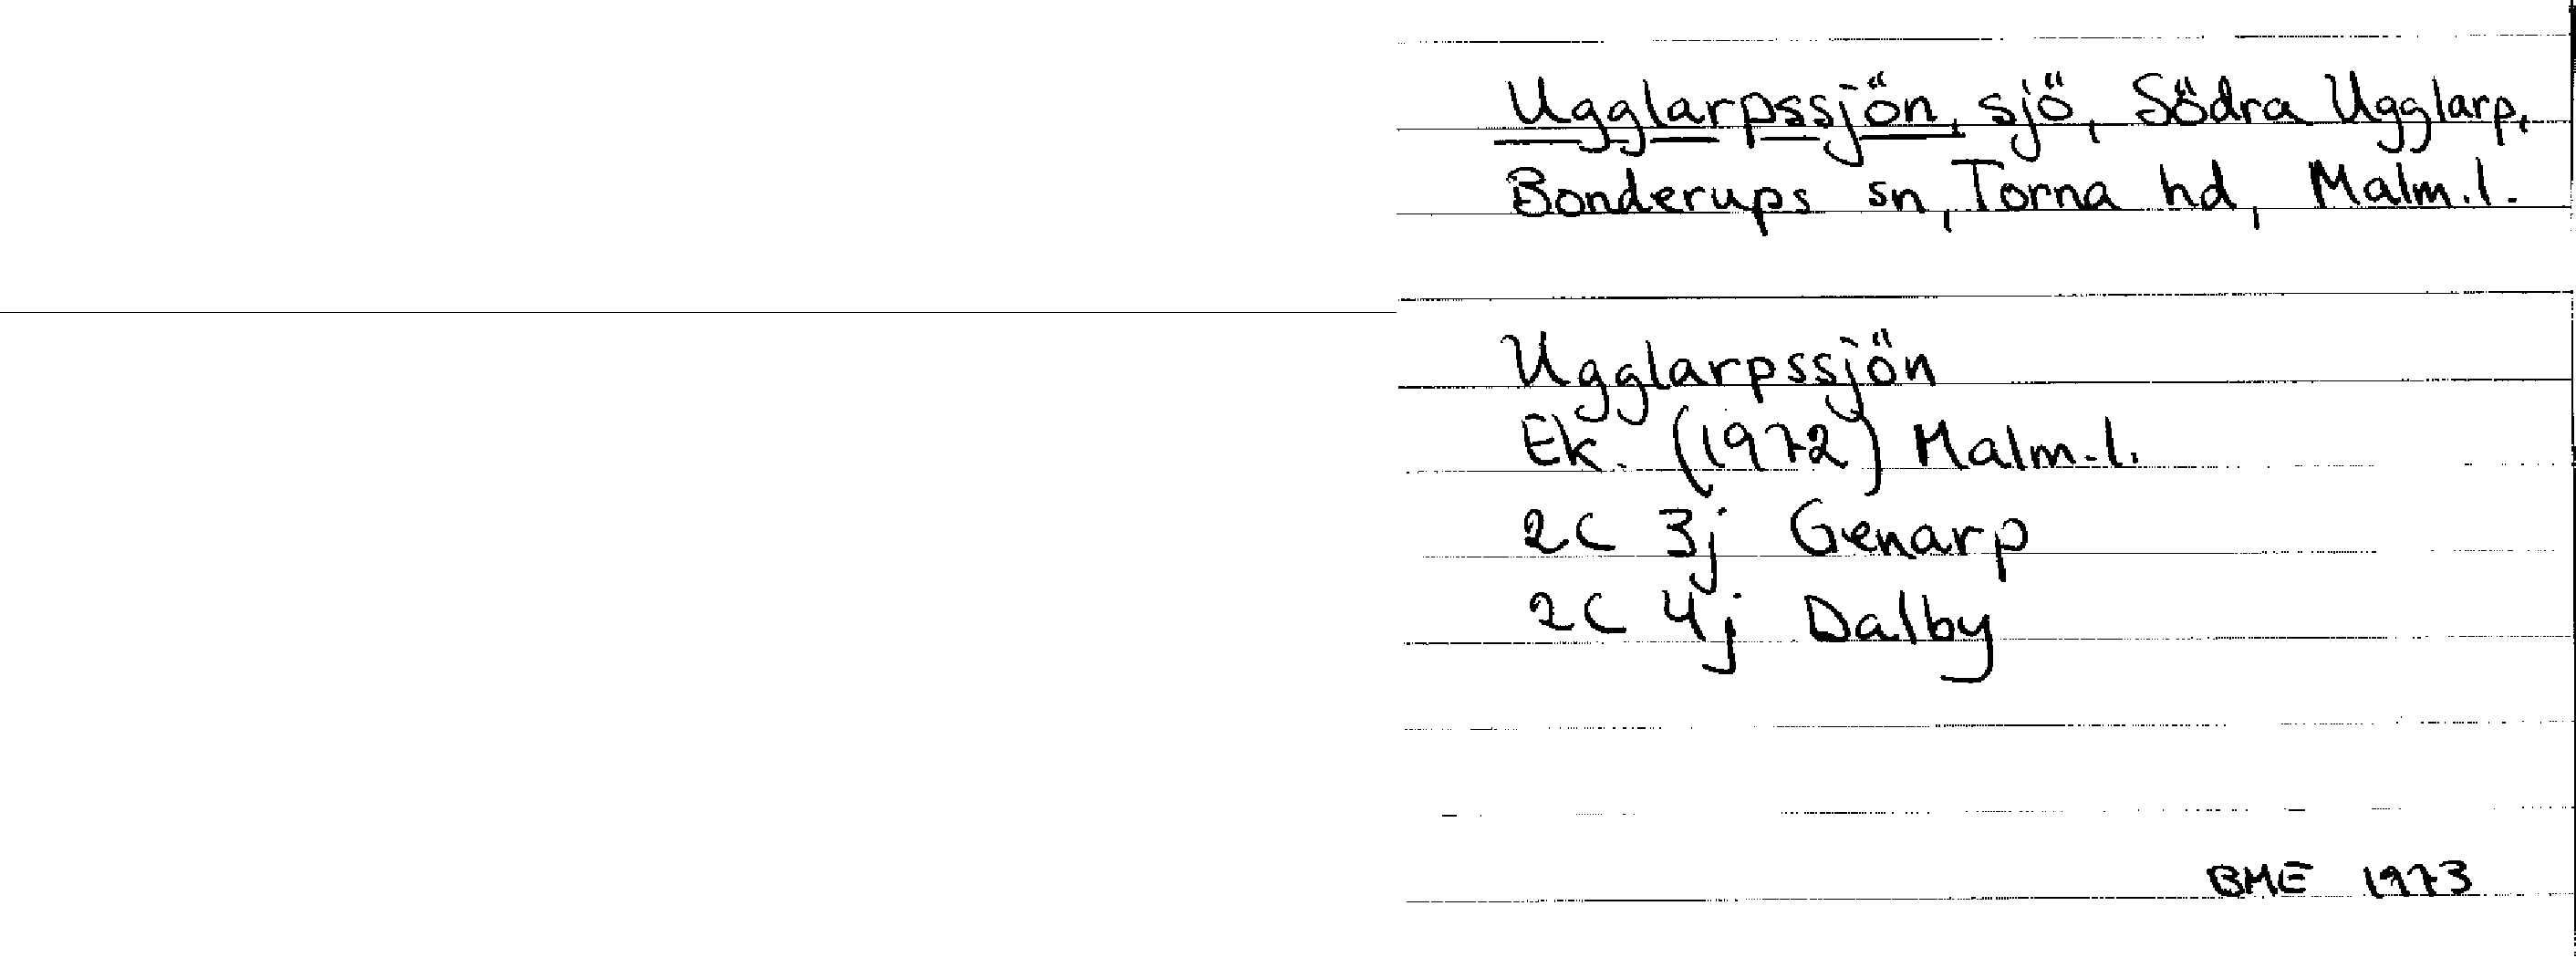 Ugglarpssjön, sjö, Södra Ugglarp,
Bonderups sn, Torna hd, Malm.l.
Ugglarpssjön
Ek. (1972) Malm.l.
2C 3j Genarp
2C 4j Dalby
BME 1973